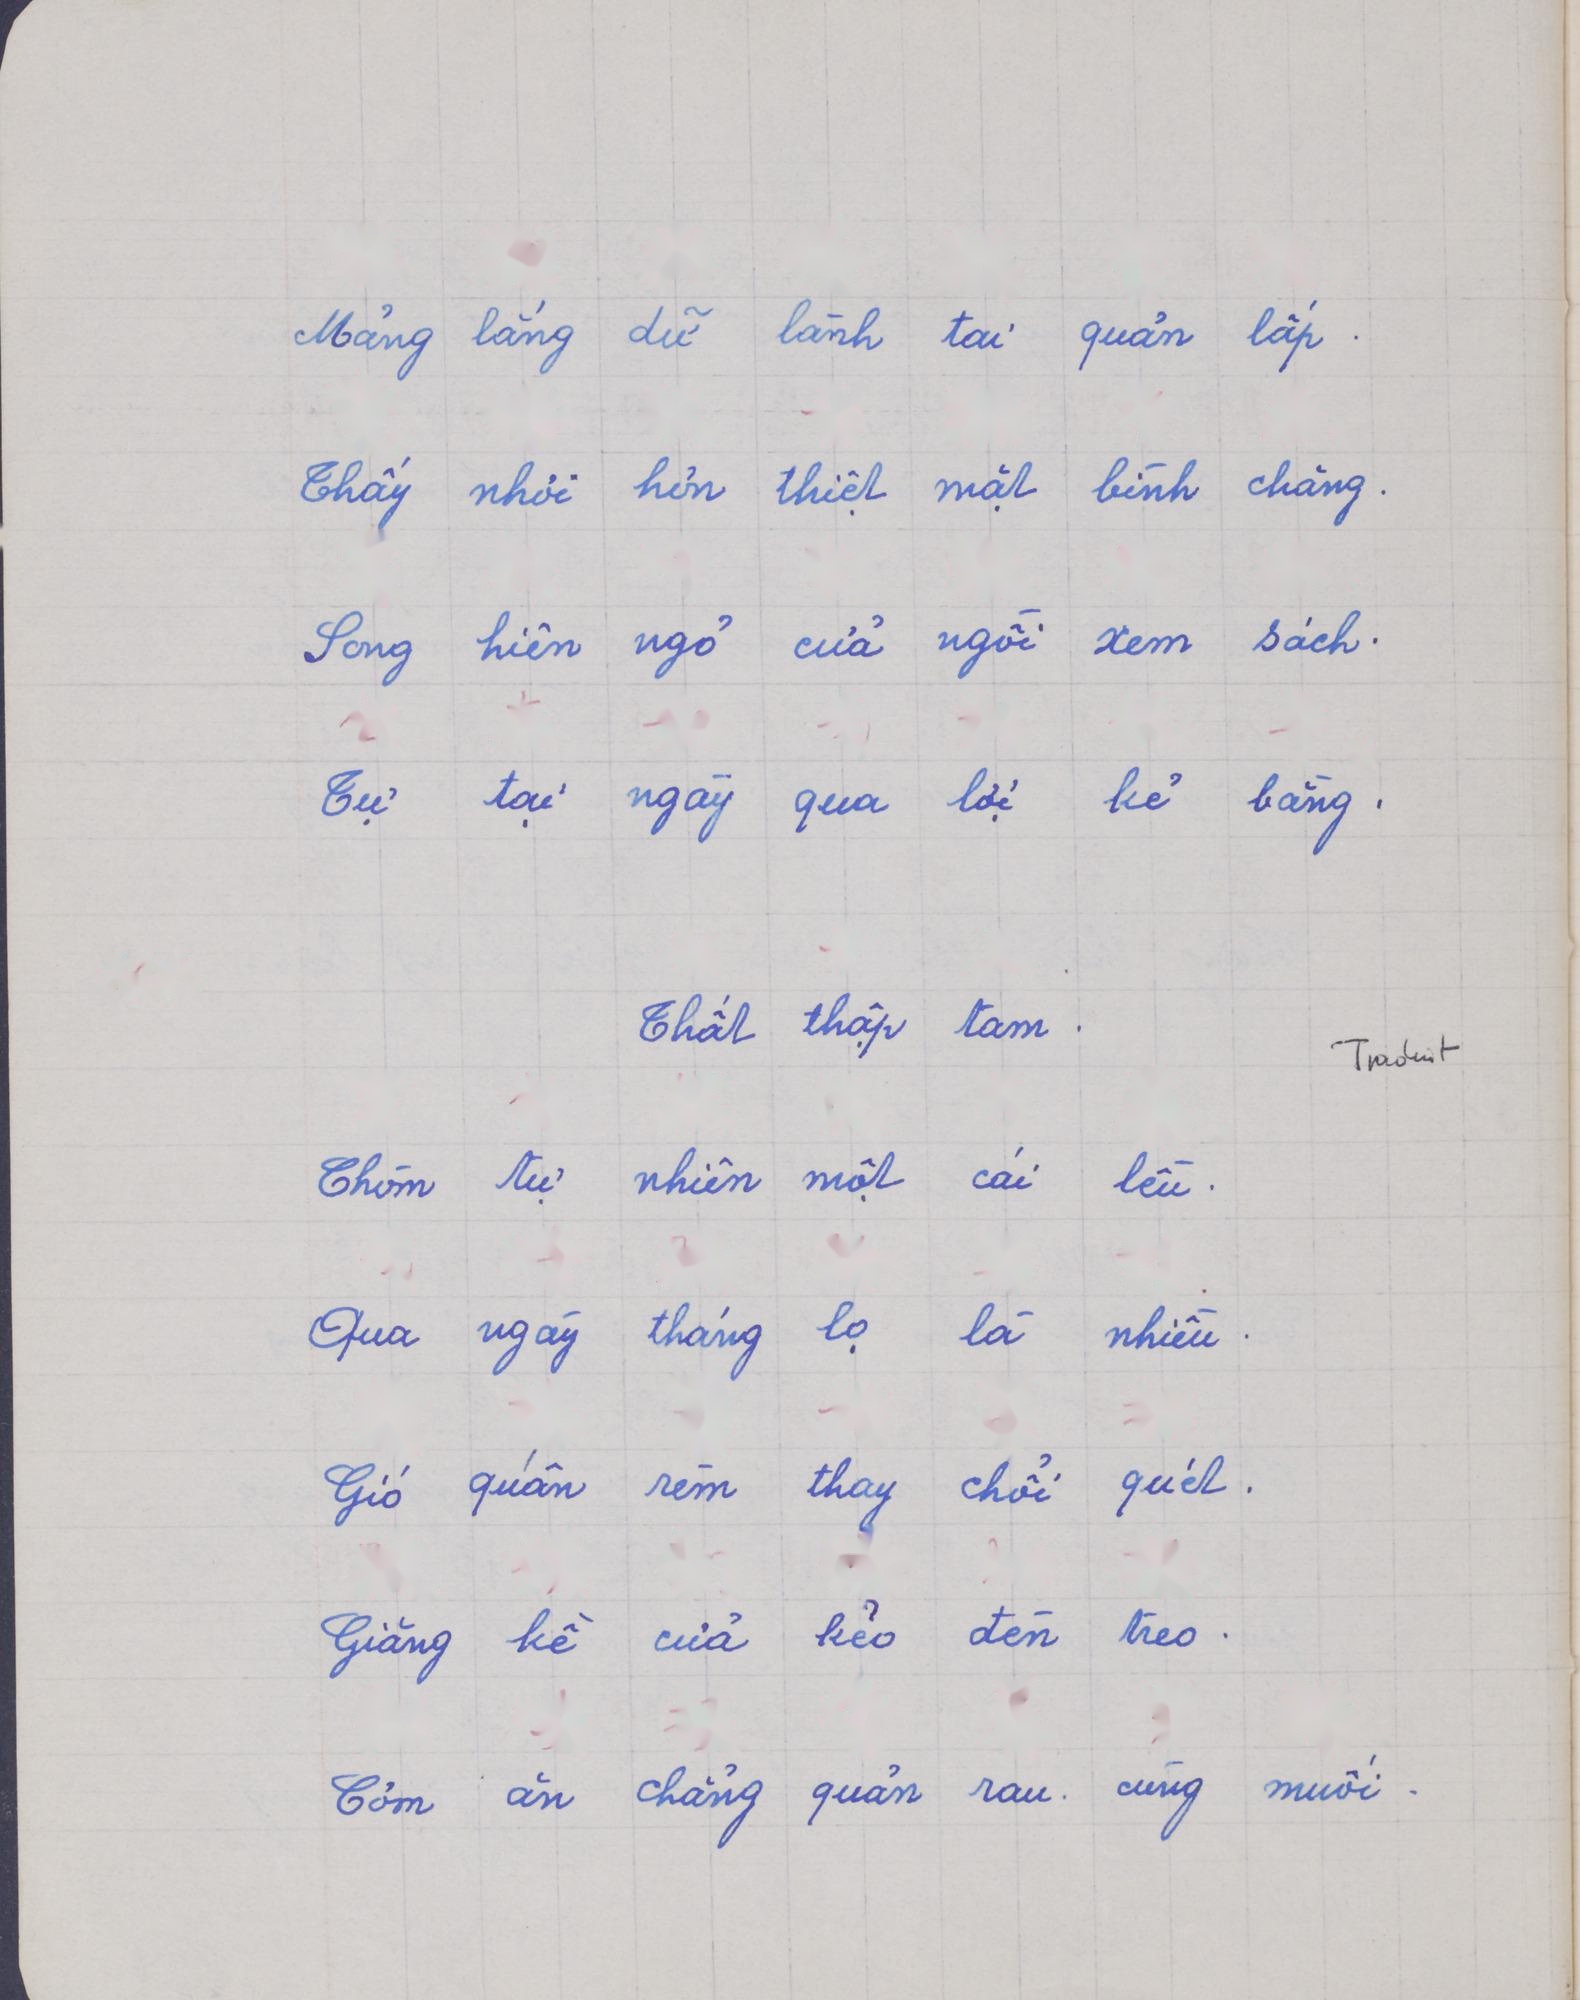 Mảng lắng dữ lành tai quản lấp.
Thấy nhời hơn thiệt mặt bình chăng.
Song hiên ngỏ cửa ngồi xem sách.
Tự tại ngày qua lợi kẻ bằng.
Thất thập tam.
Traduit
Thòm tự nhiên một cái lều.
Qua ngày tháng lọ là nhiều.
Gió quấn rèm thay chổi quét.
Giăng kề cửa kẻo đèn treo.
Cơm ăn chẳng quản rau cùng muối.